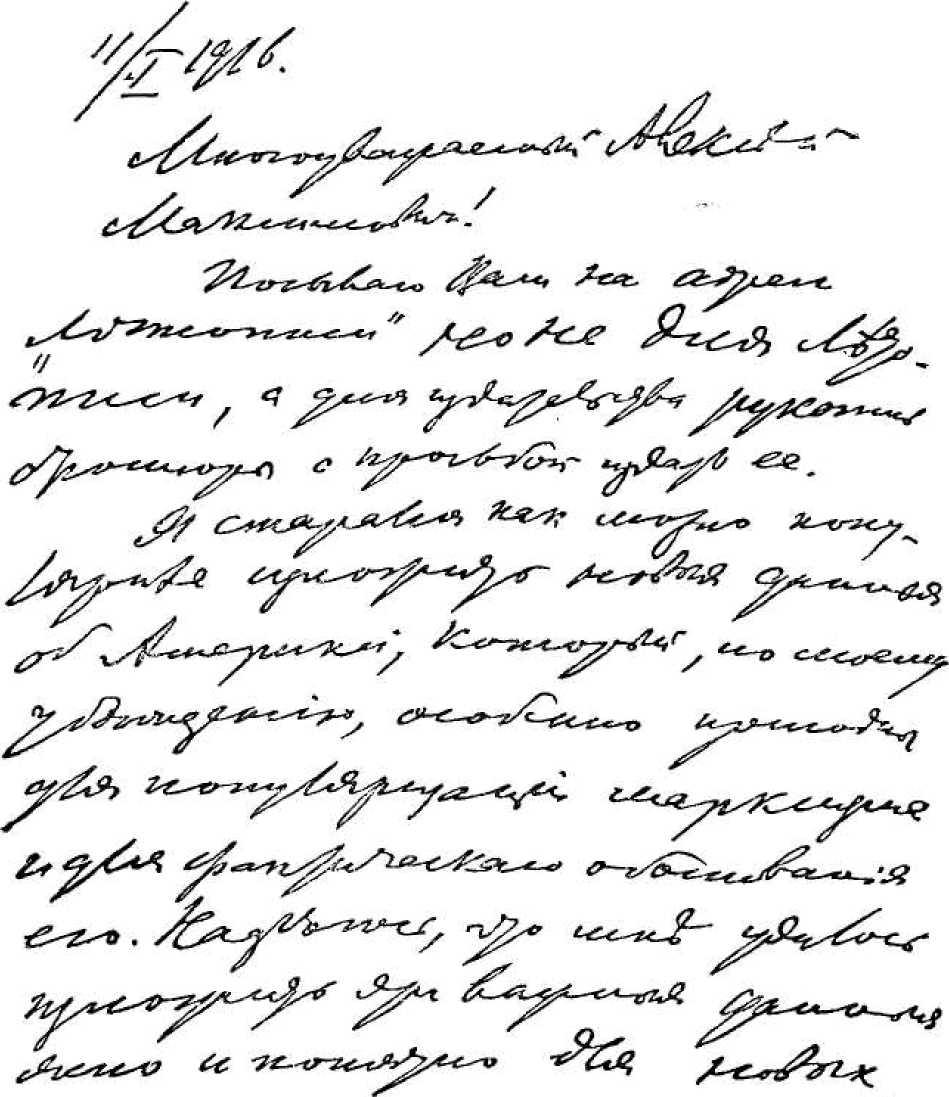 11/I 1916.
Многоуважаемый Алексей
Максимович!
Посылаю Вам на адрес
„Летописи" но не для Лето-
писи, а для издательства рукопись
брошюры с просьбой издать ее.
Я старался как можно попу-
лярнее изложить новыя данныя
об Америке, которыя, по моему
убеждению, особенно пригодны
для популяризации марксизма
и для фактическаго обоснования
его. Надеюсь, что мне удалось
изложить эти важныя данныя
ясно и понятно для новых